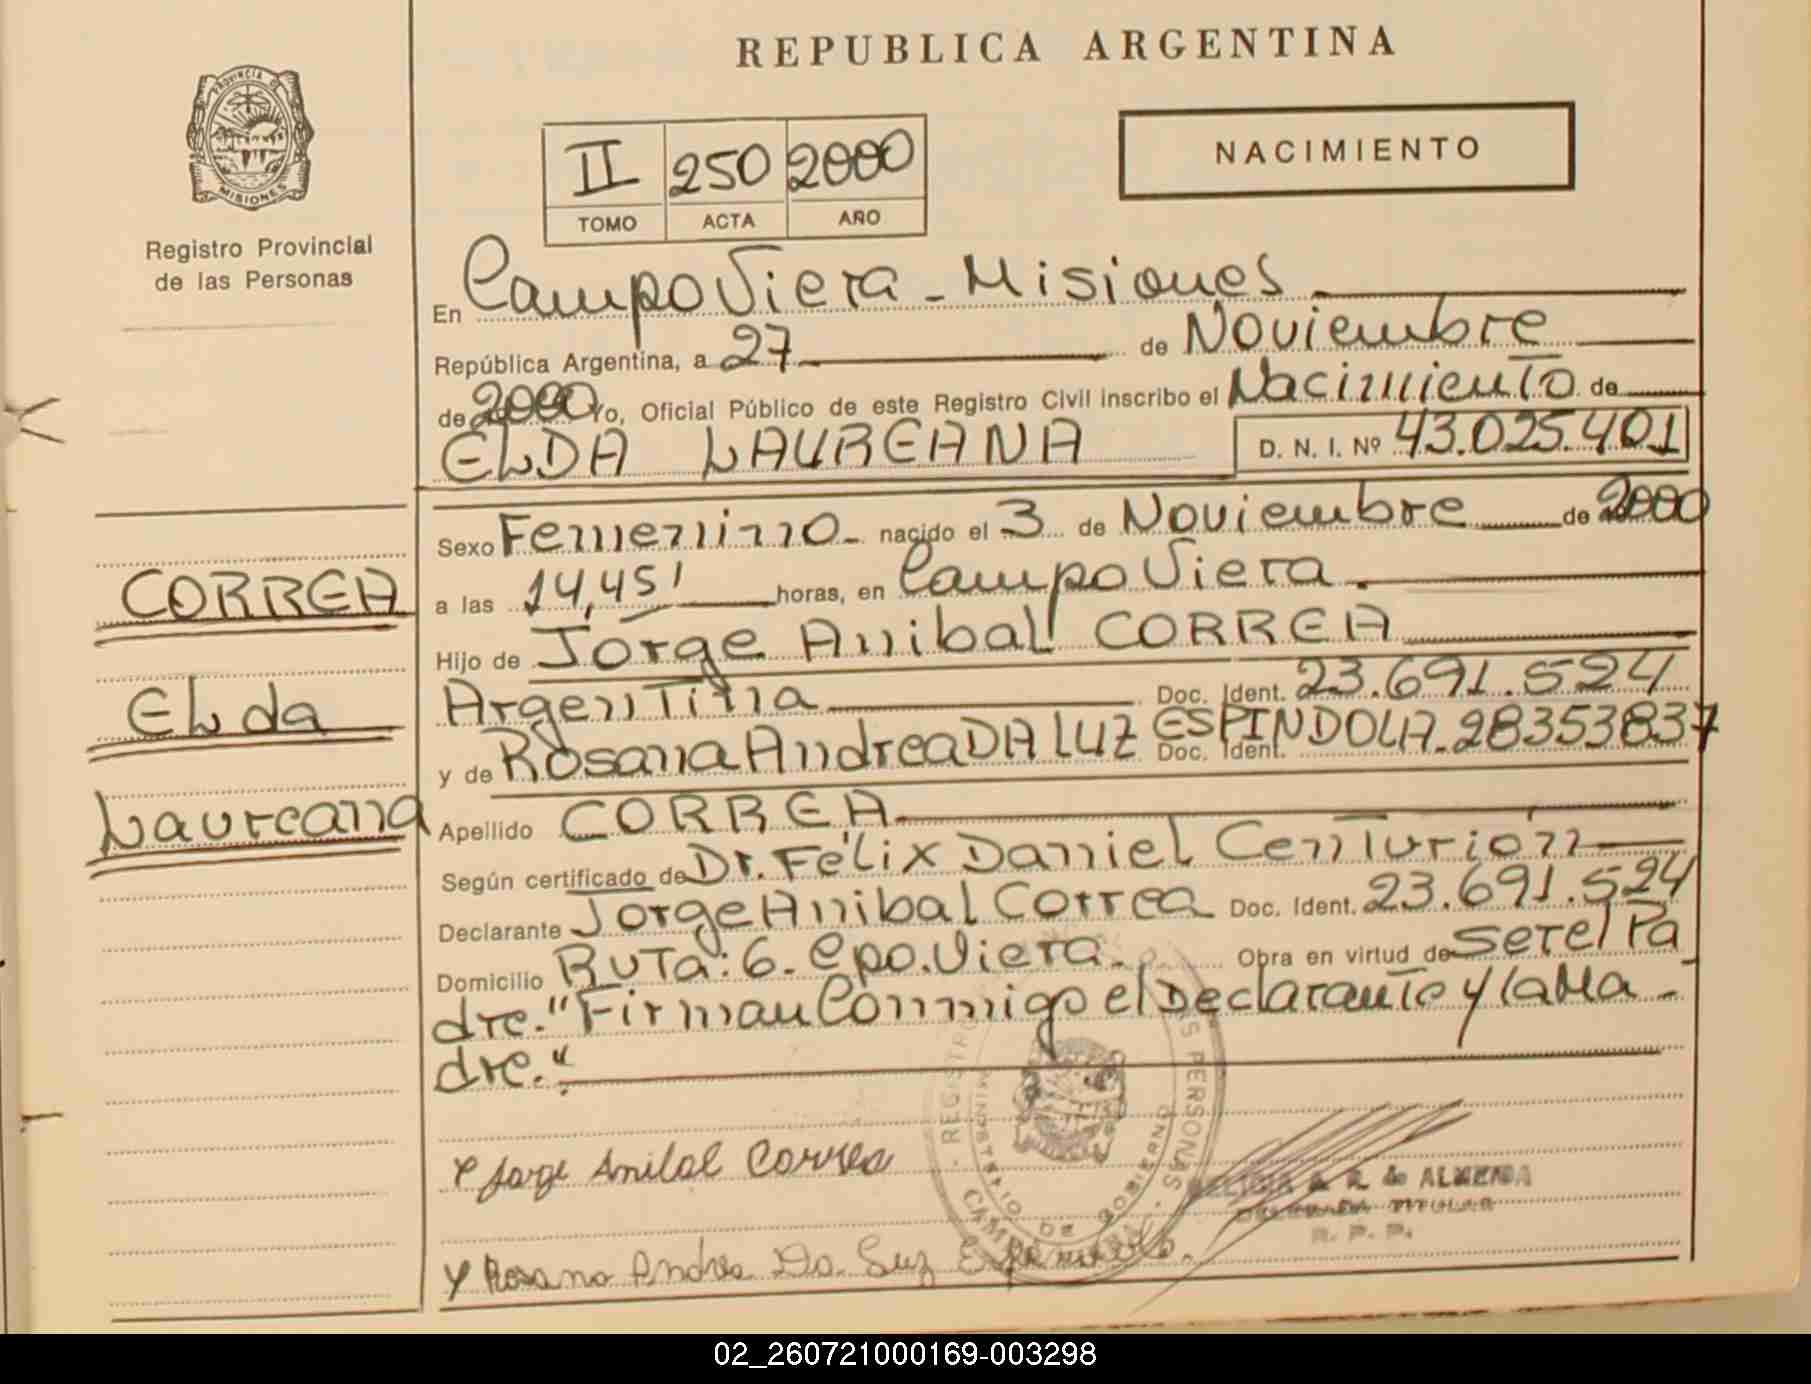 REPUBLICA ARGENTINA
PROVINCIA DE
MISIONES
Registro Provincial
de las Personas
II 250 2000
TOMO ACTA AÑO
NACIMIENTO
En Campo Viera - Misiones
República Argentina, a 27 de Noviembre
de 2000 Yo, Oficial Público de este Registro Civil inscribo el Nacimiento de
ELDA LAUREANA D. N. I. Nº 43.025.401
CORREA
Elda
Laureana
Sexo Femenino - nacido el 3 de Noviembre de 2000
a las 14,45' horas, en Campo Viera.
Hijo de Jorge Anibal CORREA
Argentina Doc. Ident. 23.691.524
y de Rosana Andrea DA LUZ ESPINDOLA - Doc. Ident. 28353837
Apellido CORREA
Según certificado de Dr. Félix Daniel Centurión
Declarante Jorge Anibal Correa Doc. Ident. 23.691.524
Domicilio Ruta: 6. Cpo. Viera. Obra en virtud de ser el Pa
dre. "Firman Conmigo el Declarante y la Ma-
dre."
REGISTRO PERSONAS
MINISTERIO DE GOBIERNO
Y Jorge Anibal Correa
DE ALMEIDA
DELEGADA TITULAR
R. P. P.
Y Rosana Andrea Da Luz
02_260721000169-003298